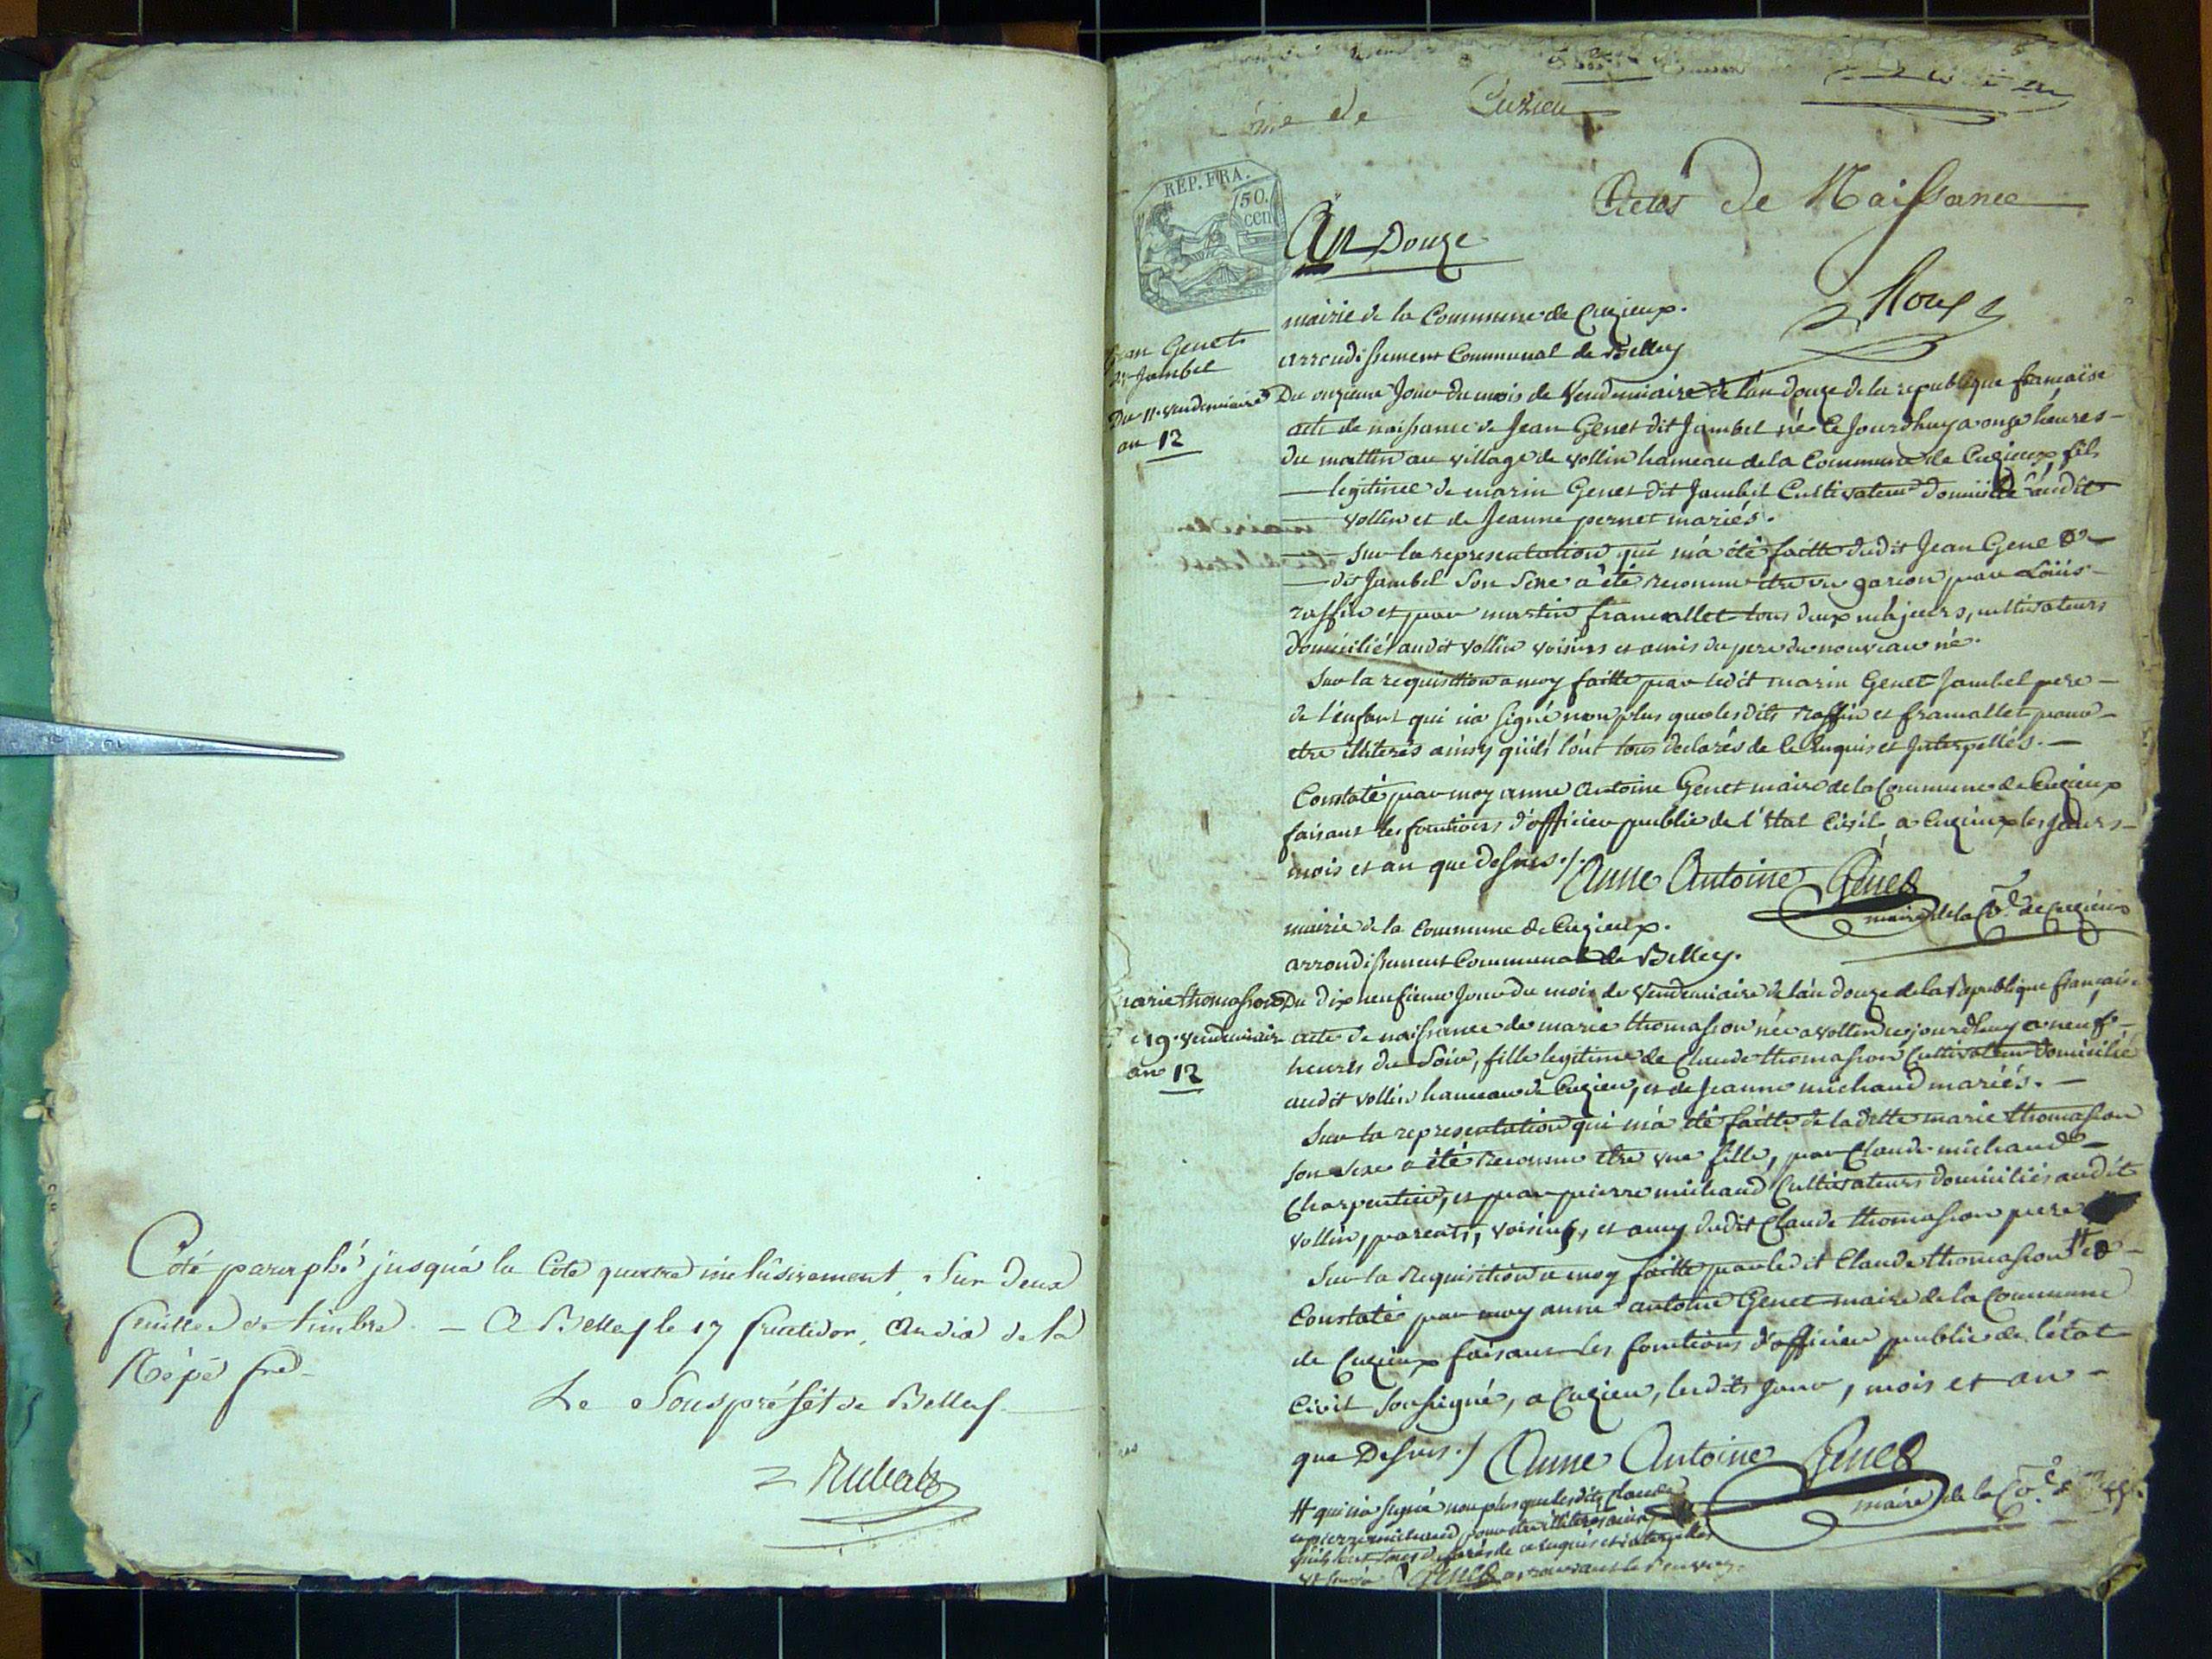 Coté paraphé jusqu'à la Cote quatre inclusivement, Sur deux
feuilles de timbre. — A Belley le 17 fructidor, an dix de la
Rép. fre.
Le Sous préfet de Belley
Rubat
de Cuzieu
Actes de Naissance
REP. FRA.
50.
cen
An Douze
Roux
mairie de la Commune de Cuzieux.
arrondissement Communal de Belley
Jean Genet
dit Jambel
Du 11 vendemiaire
an 12
Du onzieme Jour du mois de Vendemiaire de l'an douze de la republique française
acte de naissance de Jean Genet dit Jambel né le Jourdhuy a onze heures
du mattin au village de vollin hameau de la Commune de Cuzieux, fils
legitime de marin Genet dit Jambel Cultivateur domicilié audit
vollin et de Jeanne pernet mariés.
Sur la representation qui m'a été faitte dudit Jean Genet
dit Jambel Son Sexe a été reconnu etre un garcon par Loüis
raffin et par martin framallet tous deux majeurs, cultivateurs
domiciliés audit vollin voisins et amis du pere du nouveau né.
Sur la requisition a moy faitte par ledit marin Genet Jambel pere
de l'enfant qui n'a signé non plus que lesdits Raffin et framallet pour
etre illiterés ainsy qu'ils l'ont tous declarés de ce Enquis et Interpellés.
Constaté par moy anne Antoine Genet maire de la Commune de Cuzieux
faisant les fonctions d'officier public de l'Etat Civil a Cuzieux les jours
mois et an que dessus./. Anne Antoine Genet
maire de la Cne de Cuzieux
mairie de la Commune de Cuzieux.
arrondissement Communal de Belley.
marie thomasson
19 vendemiaire
an 12
Du dix neufieme Jour du mois de Vendemiaire de l'an douze de la Republique française
acte de naissance de marie thomasson née a vollin cejourdhuy a neuf
heures du Soir, fille legitime de Claude thomasson Cultivateur domicilié
audit vollin hameau de Cuzieu, et de Jeanne michaud mariés.
Sur la representation qui m'a été faitte de ladette marie thomasson
son Sexe a été Reconnu etre une fille, par Claude michaud
Charpentier, et par pierre michaud Cultivateurs domiciliés audit
vollin, parents, voisins, et amy dudit Claude thomasson pere
Sur la Requisition a moy faitte par ledit Claude thomasson #
Constaté par moy anne antoine Genet maire de la Commune
de Cuzieux faisant les fonctions d'officier public de l'état
Civil Soussigné, a Cuzieu, lesdits Jour, mois et an
que Dessus./ Anne Antoine Genet
maire de la Cne de
# qui n'a signé non plus que lesdits Claude
et pierre michaud pour etre illiterés ainsi
qu'ils l'ont tous declarés de ce enquis et interpellés
Genet